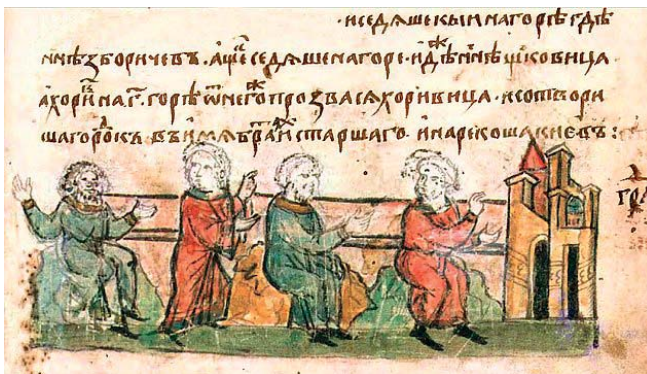 ·и седѧше кыи на горѣ гдѣ
нн҃ѣ зборичевъ· а щеⷦ седѧше на горе· идѣⷤ нн҃ѣ щековица
а хориⷡ на г҃· горѣ ѿ негоⷤ прозвасѧ хоривица· и сотвори
ша гороⷣкъ въ имѧ браⷮа иⷯ старшаго· и нарекоша киевъ: